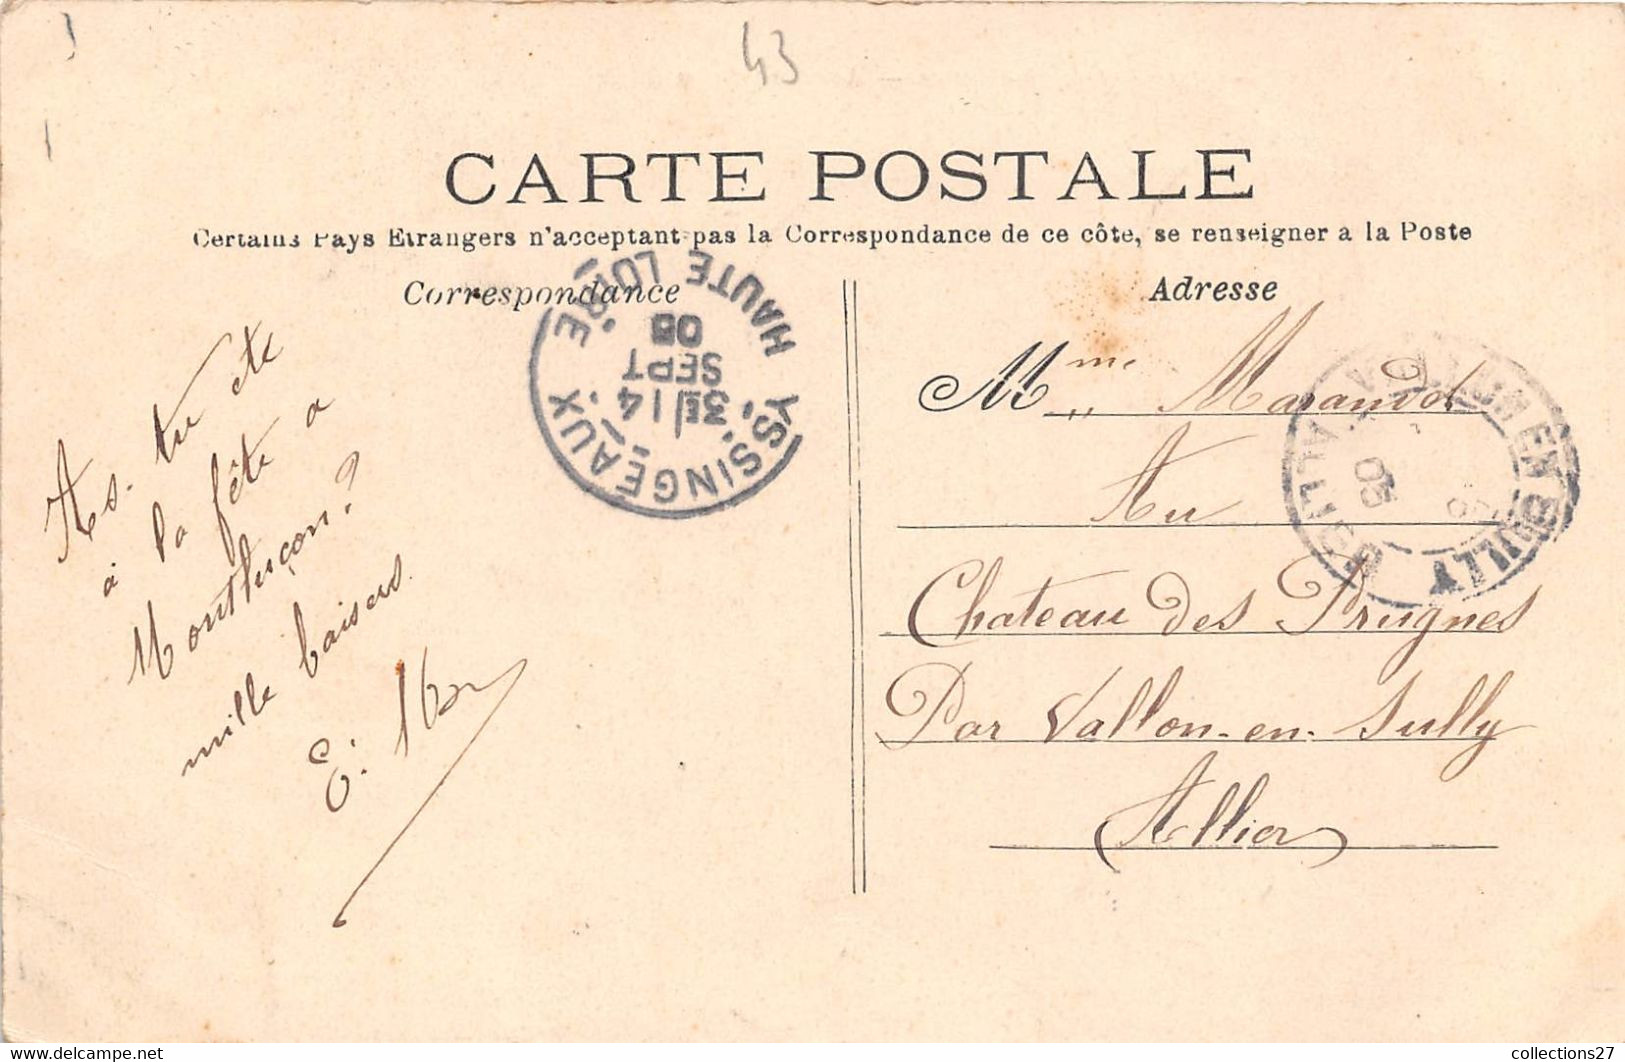 43
CARTE POSTALE
Certains Pays Etrangers n'acceptant pas la Correspondance de ce côte, se renseigner a la Poste
Correspondance
Adresse
YSSINGEAUX
HAUTE LOIRE
3E/14
SEPT
05
As-tu été
à la fête a
Montluçon?
mille baisers
E.
Mme Marandol
Au
Chateau des Prugnes
Par Vallon-en-Sully
Allier
EN SULLY
ALLIER
05
collections27